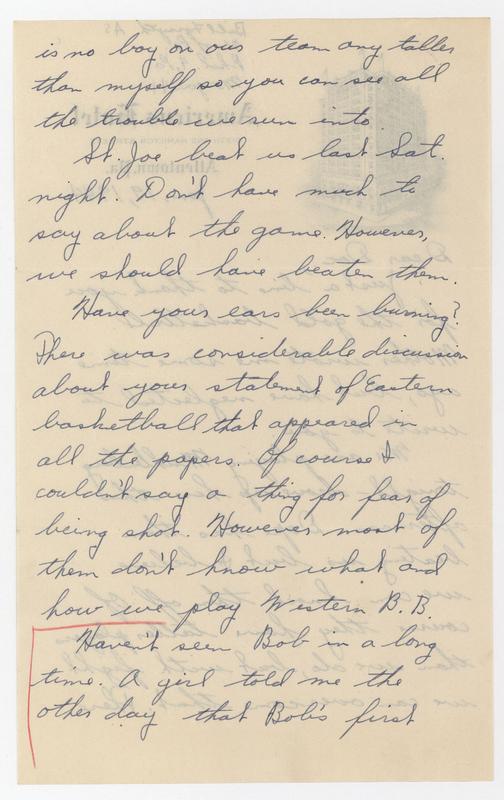 is no boy on our team any taller
than myself so you can see all
the trouble we run into.
St. Joe beat us last Sat.
night. Don't have much to
say about the game. However,
we should have beaten them.
Have your ears been burning?
There was considerable discussion
about your statement of Eastern
basketball that appeared in
all the papers. Of course I
couldn't say a thing for fear of
being shot. However most of
them don't know what and
how we play Western B.B.
Haven't seen Bob in a long
time. A girl told me the
other day that Bob's first